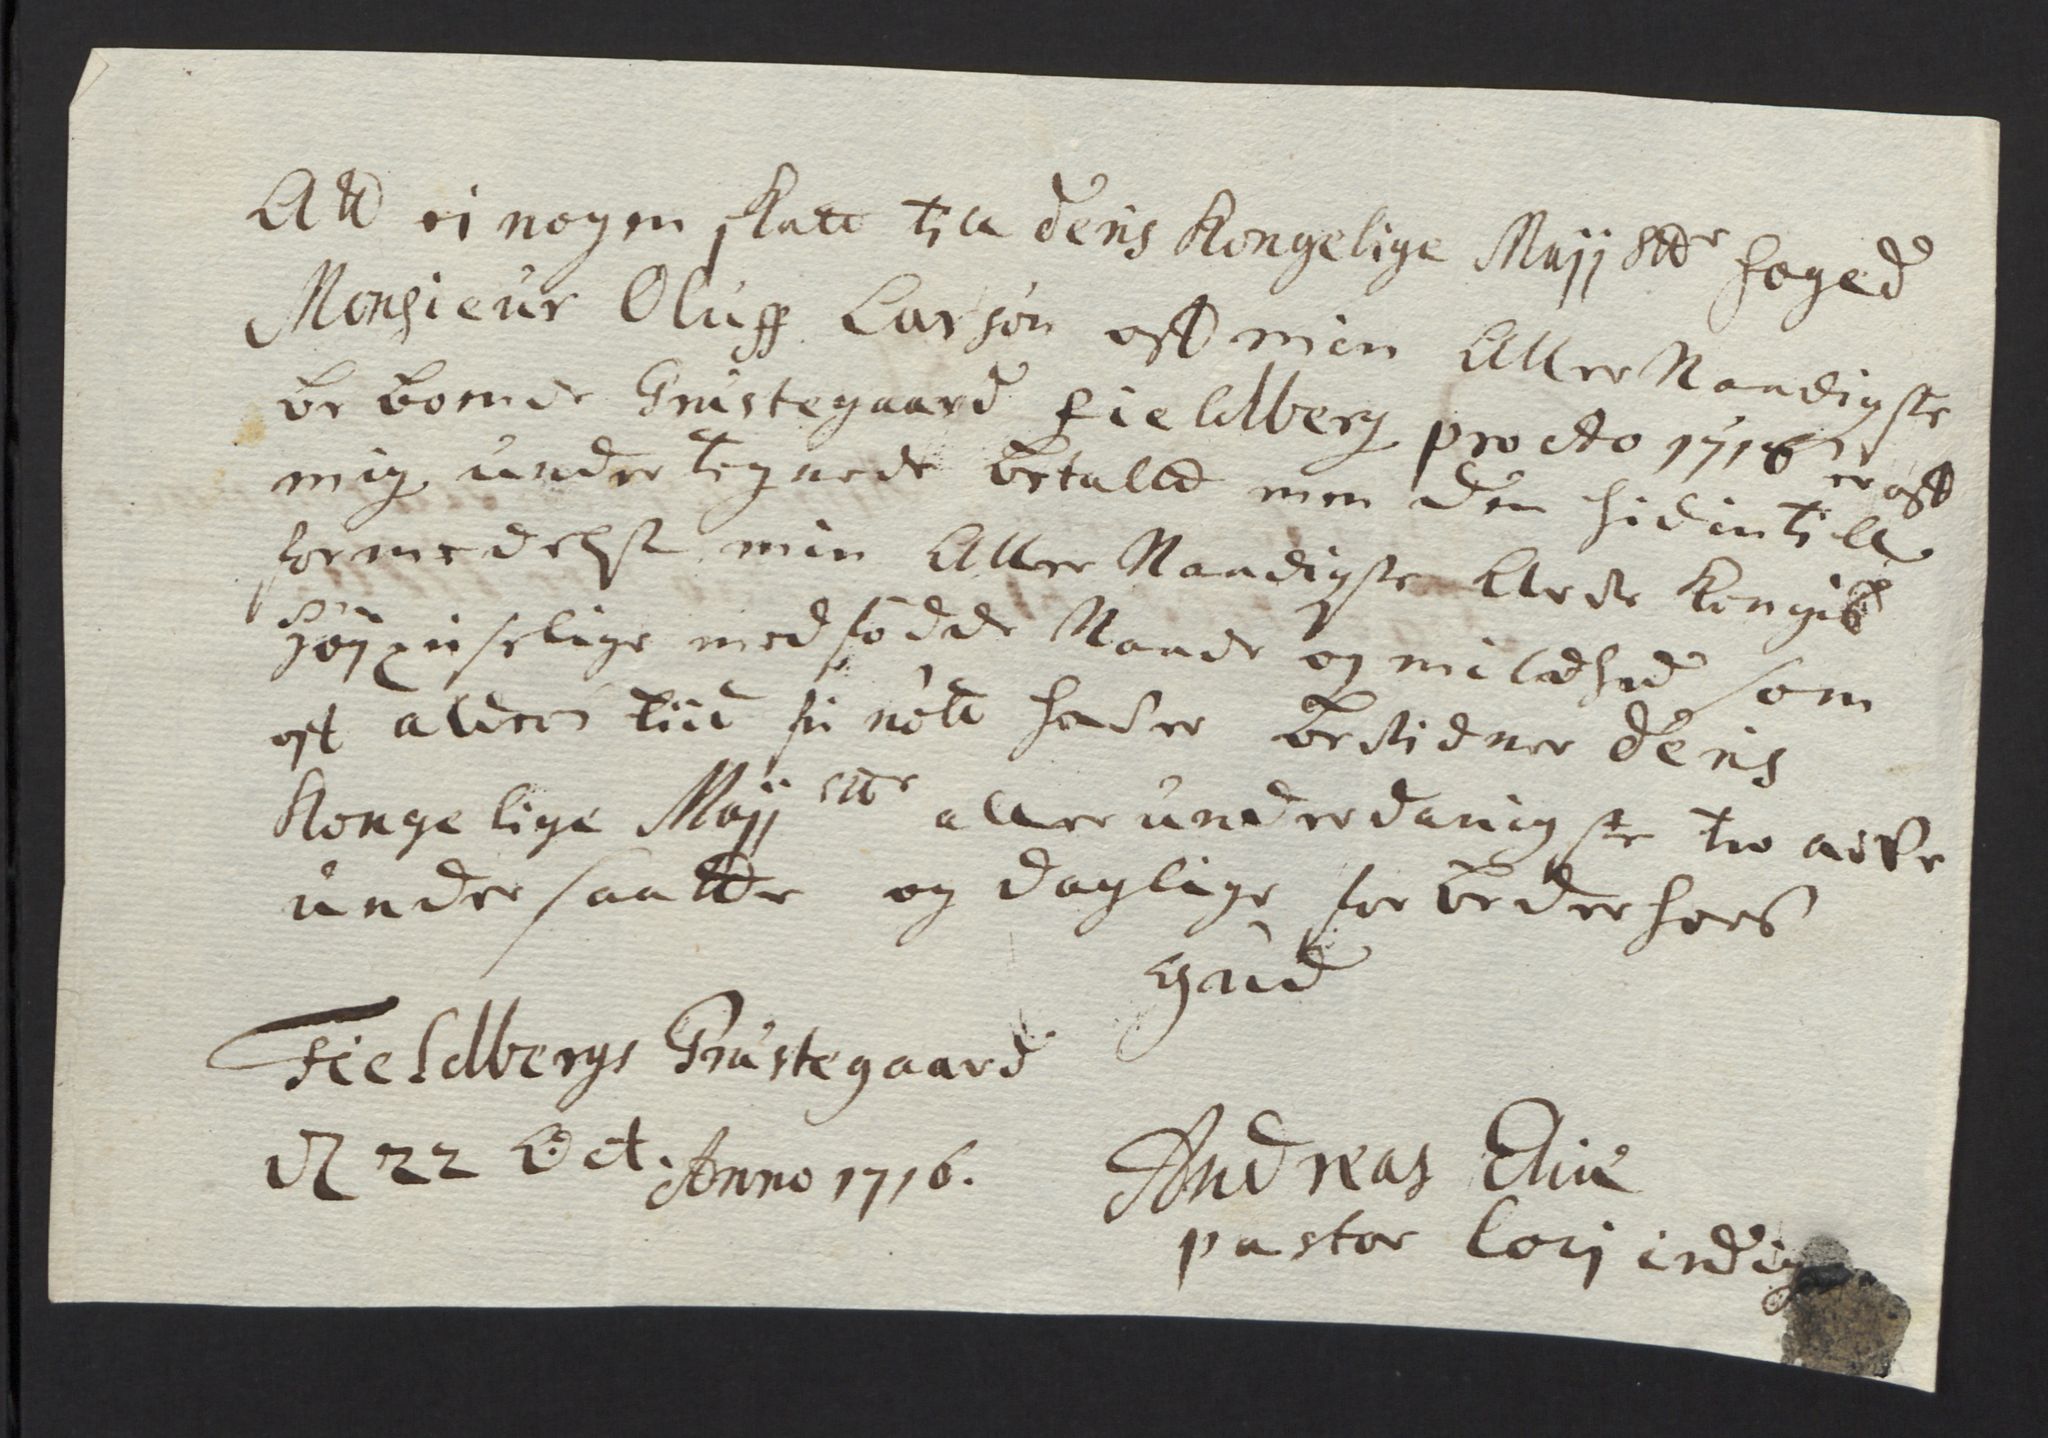 Att ei nogen skatt till dens Kongelige Majj stttr foged
Monsieur Oluff Larsøn aff min Aller Naadigste
be boende Prüstegaard Fieldberg pro Ao 1716 er aff
mig under tegnede betalld men den hidintill
formedelst min Aller Naadigste Arfve Kongis
Høypriselige medfødde Naade og mildhed som
aff alders tiid niüdt hafver bekiender dens
Kongelige Majj sttr aller underdanigste troe arfve
undersaatter og daglige forbeder hoes
Gud
Fieldbergs Prüstegaard
d 22 Oct. Anno 1716.
Andreas Elie
pastor Locj indig